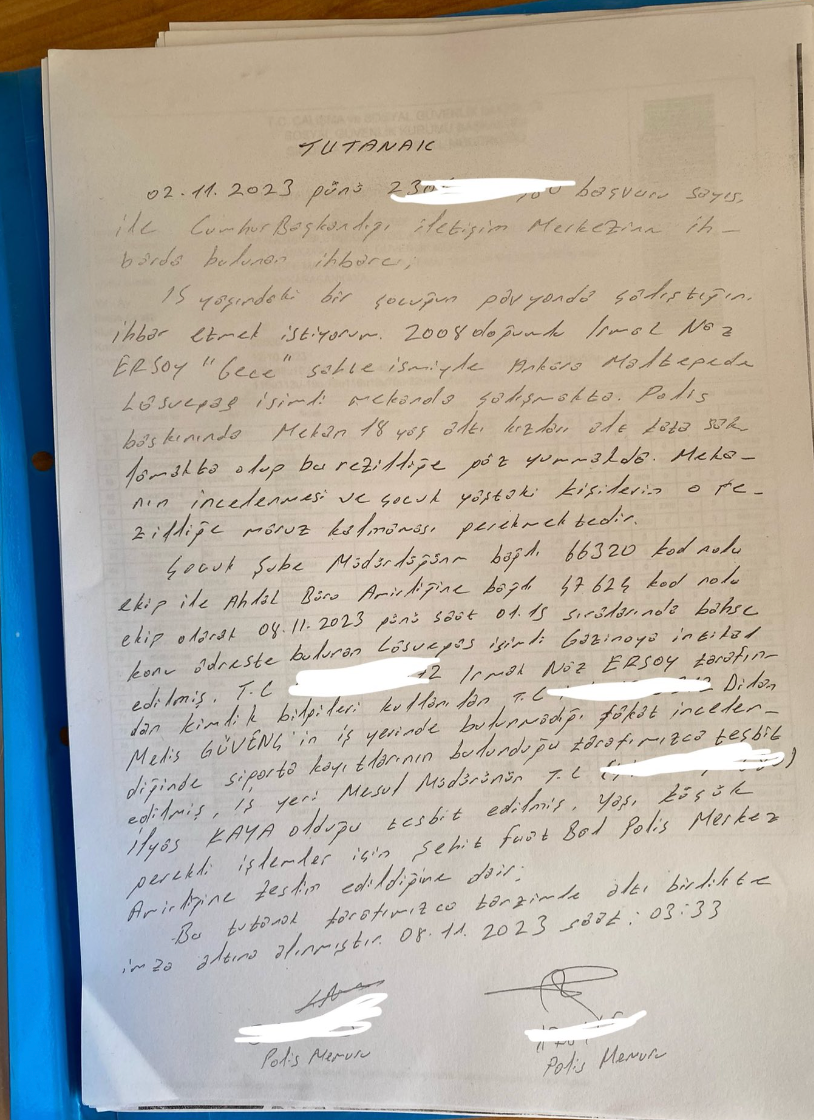 TUTANAK
02.11.2023 günü 230 başvuru sayısı
ile CumhurBaşkanlığı iletişim Merkezine ih-
barda bulunan ihbarcı;
15 yaşındaki bir çocuğun pavyonda çalıştığını
ihbar etmek istiyorum. 2008 doğumlu Irmak Naz
ERSOY "Gece" sahte ismiyle Ankara Maltepede
Lasvegas isimli mekanda çalışmakta. Polis
baskınında Mekan 18 yaş altı kızları alt kata sak
lamakta olup bu rezilliğe göz yummakda. Meka-
nın incelenmesi ve çocuk yaştaki kişilerin o re-
zilliğe maruz kalmaması gerekmektedir.
Çocuk Şube Müdürlüğüne bağlı 66320 kod nolu
ekip ile Ahlak Büro Amirliğine bağlı 47624 kod nolu
ekip olarak 08.11.2023 günü saat 01.15 sıralarında bahse
konu adreste bulunan Lasvegas isimli Gazinoya intikal
edilmiş. T.C 12 Irmak Naz ERSOY tarafın-
dan kimlik bilgileri kullanılan T.C Dilan
Melis GÜVENÇ'in iş yerinde bulunmadığı fakat incelen-
diğinde siporta kayıtlarının bulunduğu tarafımızca tesbit
edilmiş, iş yeri Mesul Müdürünün T.C ( )
İlyas KAYA olduğu tesbit edilmiş. yaşı küçük
gerekli işlemler için Şehit Fuat Bad Polis Merkez
Amirliğine teslim edildiğine dair;
Bu tutanak tarafımızca tanzimde altı birlikte
imza altına alınmıştır. 08.11.2023 saat: 03:33
Polis Memuru
Polis Memuru